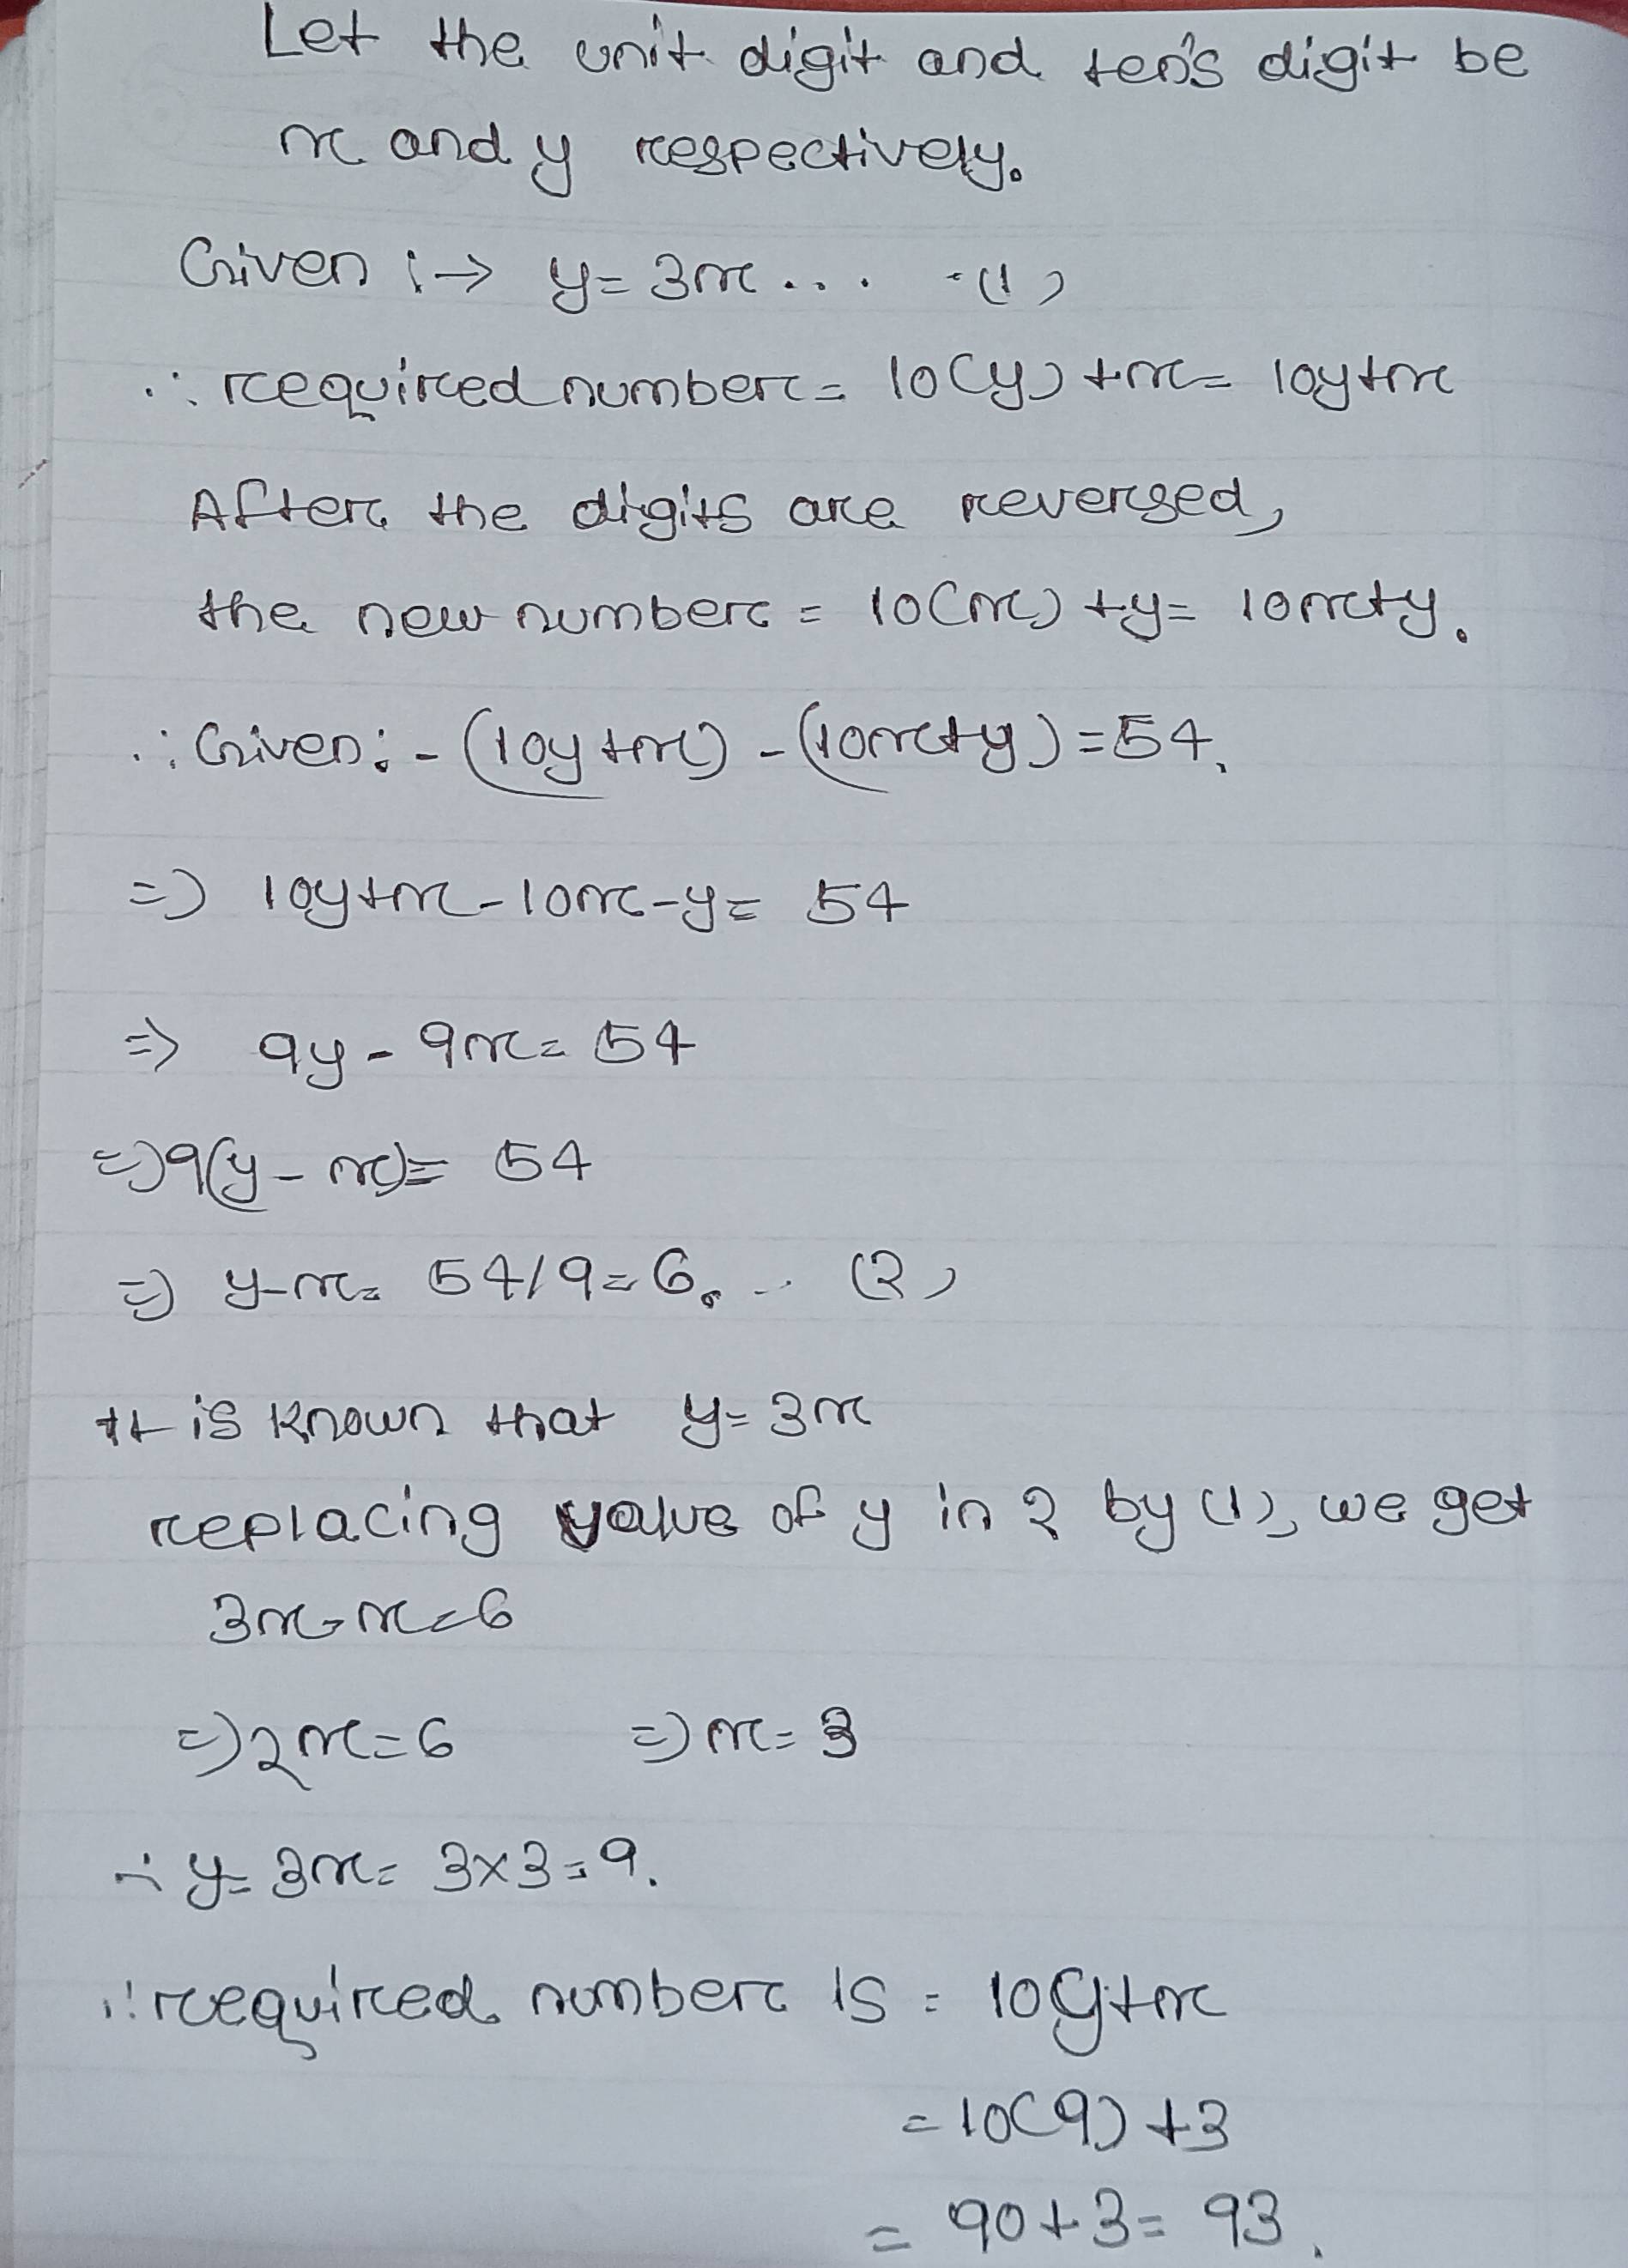 Let the unit digit and ten's digit be
x and y respectively.
Given :→ y = 3x ... -(1)
∴ required number = 10(y) + x = 10y+x
After the digits are reversed,
the new number = 10(x) + y = 10x+y.
∴ Given: - (10y+x) - (10x+y) = 54.
=> 10y+x - 10x - y = 54
=> 9y - 9x = 54
=> 9(y - x) = 54
=> y-x = 54/9 = 6. .. (2)
It is known that y = 3x
replacing value of y in 2 by (1), we get
3x - x = 6
=> 2x = 6 => x = 3
∴ y = 3x = 3×3 = 9.
∴ required number is = 10y+x
= 10(9) + 3
= 90 + 3 = 93.